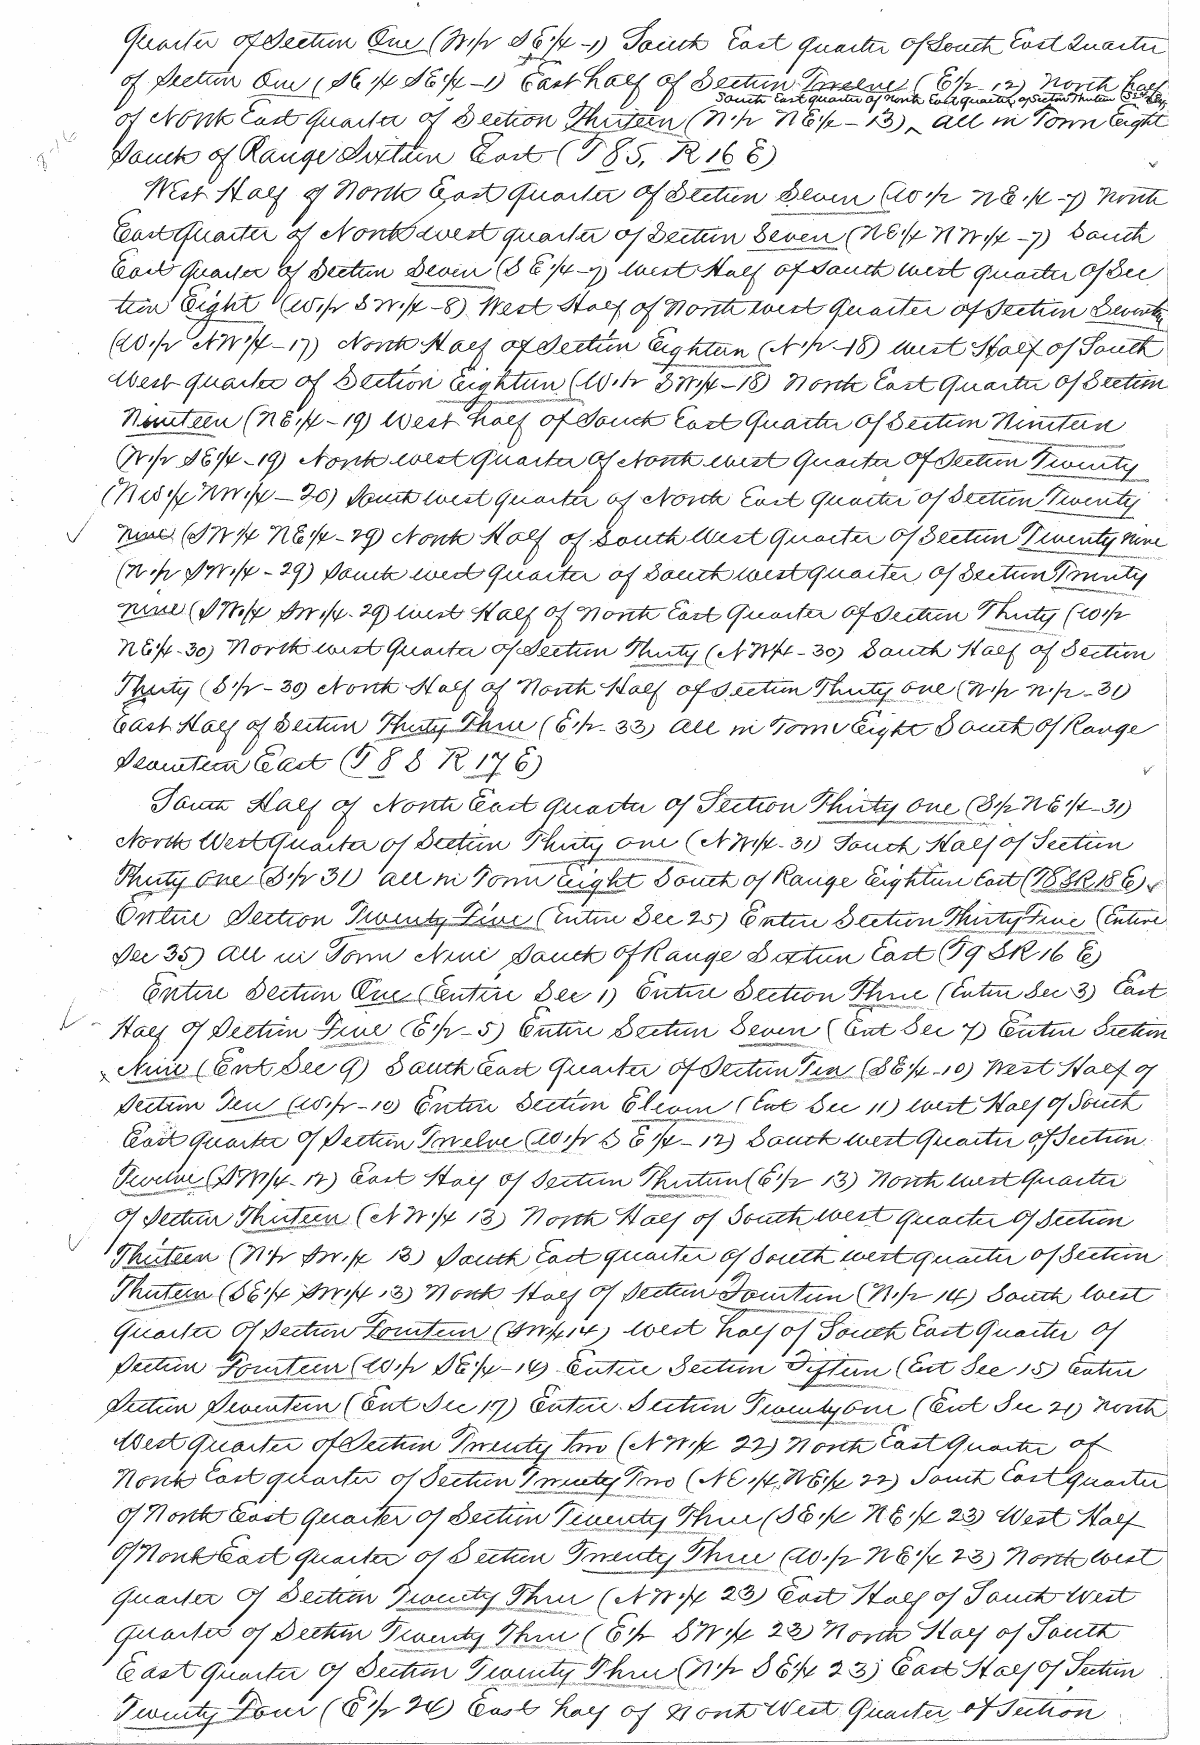 Quarter of Section One (W.1/2 SE1/4-1) South East quarter of South East Quarter
of Section One (SE1/4 SE1/4-1) East half of Section Twelve (E1/2 12) North half
South East quarter of North East quarter of Section Thirteen
of North East Quarter of Section Thirteen (N1/2 NE1/4-13) ^ all in Town Eight
South of Range Sixteen East (T8S, R16E)
West Half of North East Quarter of Section Seven (W1/2 NE1/4-7) North
East Quarter of North west quarter of Section Seven (NE1/4 NW1/4-7) South
East quarter of Section Seven (SE1/4-7) west Half of South west quarter of Sec
tion Eight (W1/2 SW1/4-8) West Half of North west Quarter of Section Sevente
(W1/2 NW1/4-17) North Half of Section Eighteen (N1/2-18) west Half of South
West quarter of Section Eighteen (W1/2 SW1/4-18) North East Quarter of Section
Nineteen (NE1/4-19) West half of South East Quarter of Section Nineteen
(W1/2 SE1/4-19) North west Quarter of North west Quarter of Section Twenty
(NW1/4 NW1/4-20) South west quarter of North East quarter of Section Twenty
nine (SW1/4 NE1/4-29) North Half of South West Quarter of Section Twenty nine
(N1/2 SW1/4-29) South west Quarter of South west quarter of Section Twenty
nine (SW1/4 SW1/4-29) west Half of North East Quarter of Section Thirty (W1/2
NE1/4-30) North west Quarter of Section Thirty (NW1/4-30) South Half of Section
Thirty (S1/2-30) North Half of North Half of Section Thirty one (N1/2 N1/2-31)
East Half of Section Thirty Three (E1/2-33) all in Town Eight South of Range
Seventeen East (T8S R17E)
South Half of North East quarter of Section Thirty one (S1/2 NE1/4-31)
North West Quarter of Section Thirty one (NW1/4-31) South Half of Section
Thirty one (S1/2 31) all in Town Eight South of Range Eighteen East (T8S R18E)
Entire Section Twenty Five (Entire Sec 25) Entire Section Thirty Five (Entire
Sec 35) all in Town Nine South of Range Sixteen East (T9SR16E)
Entire Section One (Entire Sec 1) Entire Section Three (Entire Sec 3) East
Half of Section Five (E1/2-5) Entire Section Seven (Ent Sec 7) Entire Section
Nine (Ent Sec 9) South East Quarter of Section Ten (SE1/4-10) West Half of
Section Ten (W1/2-10) Entire Section Eleven (Ent Sec 11) west Half of South
East quarter of Section Twelve (W1/2 SE1/4-12) South west Quarter of Section
Twelve (SW1/4-12) East Half of Section Thirteen (E1/2 13) North west Quarter
of Section Thirteen (NW1/4 13) North Half of South west quarter of Section
Thirteen (N1/2 SW1/4 13) South East quarter of South west quarter of Section
Thirteen (SE1/4 SW1/4 13) North Half of Section Fourteen (N1/2 14) South west
Quarter of Section Fourteen (SW1/4 14) West half of South East Quarter of
Section Fourteen (W1/2 SE1/4-14) Entire Section Fifteen (Ent Sec 15) Entire
Section Seventeen (Ent Sec 17) Entire Section Twenty one (Ent Sec 21) North
West quarter of Section Twenty Two (NW1/4 22) North East Quarter of
North East quarter of Section Twenty Two (NE1/4 NE1/4 22) South East quarter
of North East Quarter of Section Twenty Three (SE1/4 NE1/4 23) West Half
of North East quarter of Section Twenty Three (W1/2 NE1/4 23) North West
quarter of Section Twenty Three (NW1/4 23) East Half of South West
quarter of Section Twenty Three (E1/2 SW1/4 23) North Half of South
East Quarter of Section Twenty Three (N1/2 SE1/4 23) East Half of Section
Twenty Four (E1/2 24) East half of North West Quarter of Section